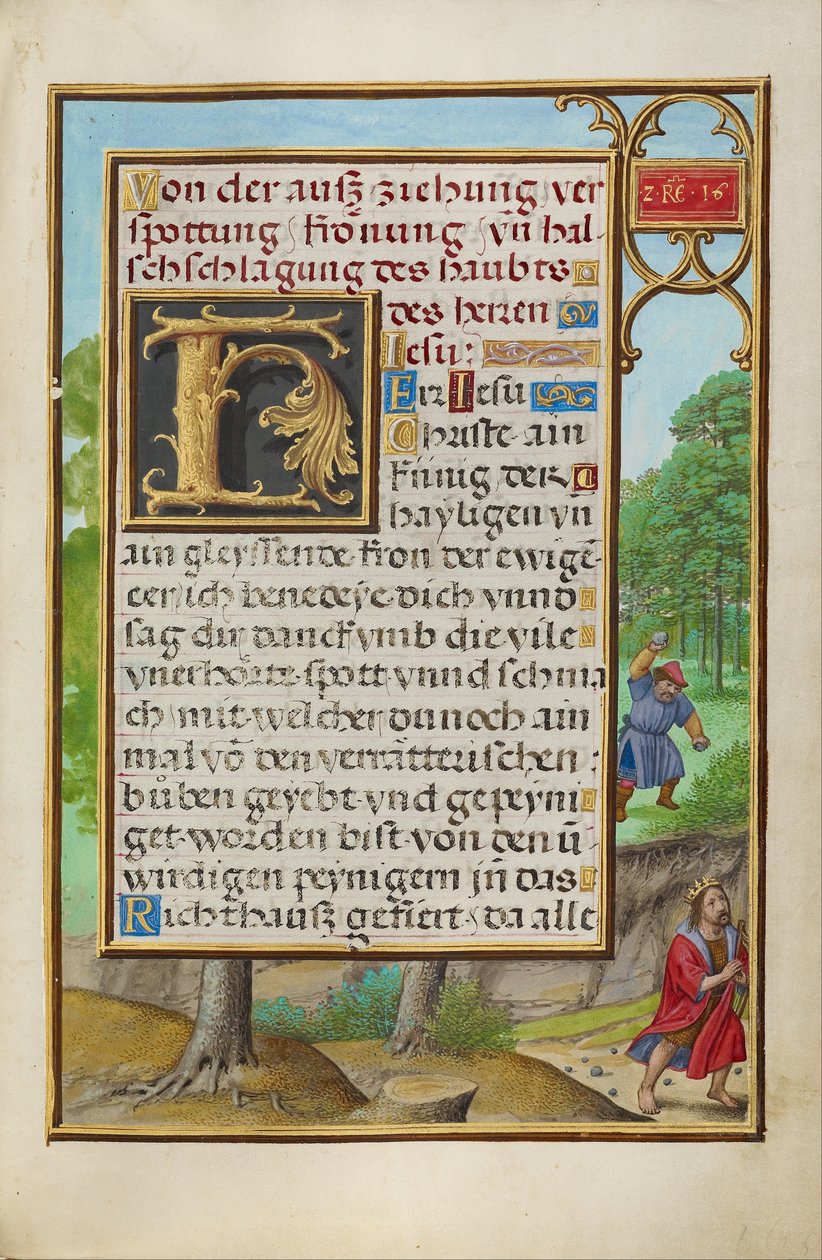 Von der ausz ziehung ver
spottung / krönung / vn̄ hal-
schschlagung des haubts
des herren
Iesu:
HErr Iesu
Christe ain
künig der
hayligen vn̄
ain gleyssende kron der ewigē
eer / ich benedeye dich vnnd
sag dir danck vmb die vile
vnerhörte spott vnnd schma
ch / mit welcher du noch ain
mal vō den verrätterischen:
bůben geyebt vnd gepeyni
get worden bist von den ū-
wirdigen peynigern jn̄ das
Richthausz gefiert / da alle
2 · RE · 16